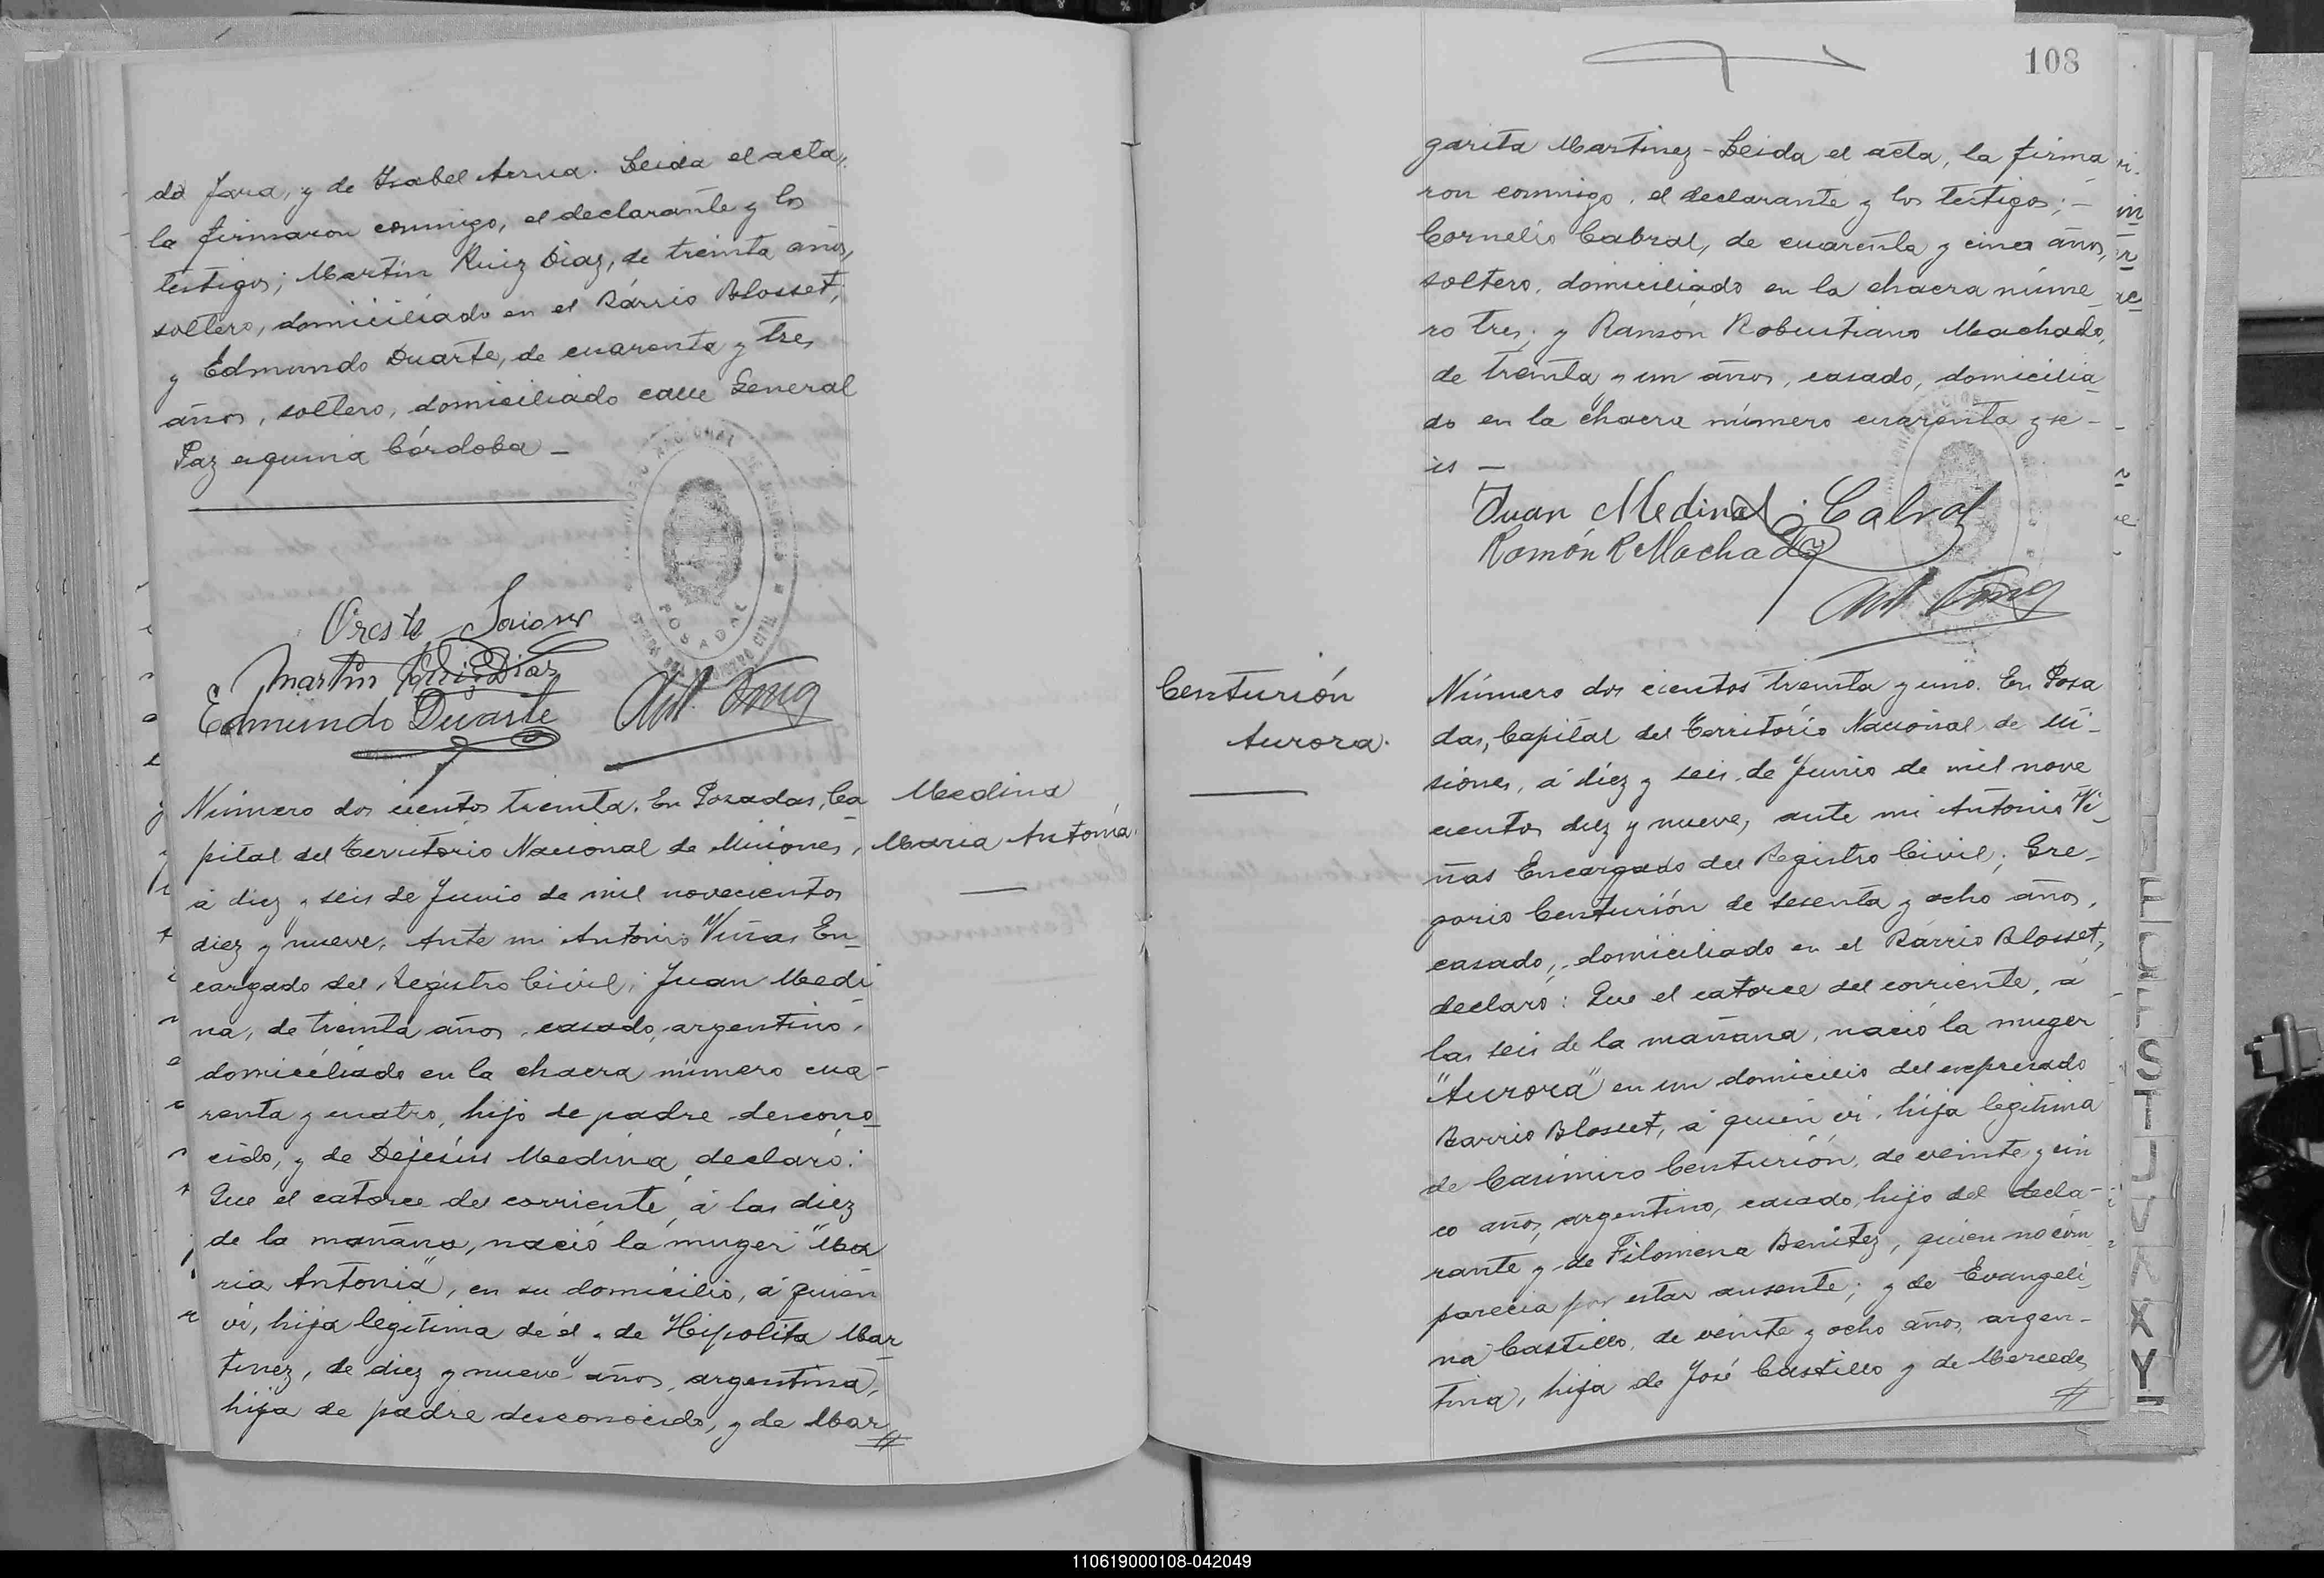 da Jara, y de Isabel Acuna. Leida el acta,
la firmaron conmigo, el declarante y los
testigos; Martin Ruiz Diaz, de treinta años,
soltero, domiciliado en el Bárrio Blosset,
y Edmundo Duarte, de cuarenta y tres
años, soltero, domiciliado calle General
Paz esquina Córdoba -
REGISTRO NACIONAL
POSADAS
Martin Ruiz Diaz
Edmundo Duarte
Número dos cientos treinta. En Posadas, Ca
pital del Territorio Nacional de Misiones,
á diez y seis de Junio de mil novecientos
diez y nueve. Ante mi Antonio Viñas, En
cargado del Registro Civil; Juan Medi
na, de treinta años, casado, argentino,
domiciliado en la chacra número cua-
renta y cuatro, hijo de padre descono
cido, y de Dejesús Medina, declaró:
Que el catorce del corriente, á las diez
de la mañana, nació la muger "Ma
ria Antonia", en su domicilio, á quien
ví, hija legitima de él y de Hipolita Mar
tinez, de diez y nueve años, argentina,
hija de padre desconocido, y de Mar
Medina
Maria Antonia
108
garita Martinez - Leida el acta, la firma
ron conmigo, el declarante y los testigos; -
Cornelio Cabral, de cuarenta y cinco años,
soltero, domiciliado en la chacra núme
ro tres; y Ramón Robustiano Machado,
de treinta y un años, casado, domicilia
do en la chacra número cuarenta y se-
is -
Juan Medina C. Cabral
Ramón R Machado
Centurión
Aurora.
Número dos cientos treinta y uno. En Posa
das, Capital del Territorio Nacional de Mi-
siones, á diez y seis de Junio de mil nove
cientos diez y nueve, ante mi Antonio Vi
ñas Encargado del Registro Civil; Gre-
gorio Centurión de sesenta y ocho años,
casado, domiciliado en el Bárrio Blosset,
declaró: Que el catorce del corriente, á
las seis de la mañana, nació la muger
"Aurora" en un domicilio del expresado
Barrio Blosset, á quien ví, hija legitima
de Casimiro Centurión, de veinte y cin
co años, argentino, casado, hijo del decla-
rante y de Filomena Benitez, quien no com
parecia por estar ausente; y de Evangeli
na Castillo, de veinte y ocho años, argen-
tina, hija de José Castillo y de Mercedes
S
T
J
V
N
X
Y
110619000108-042049